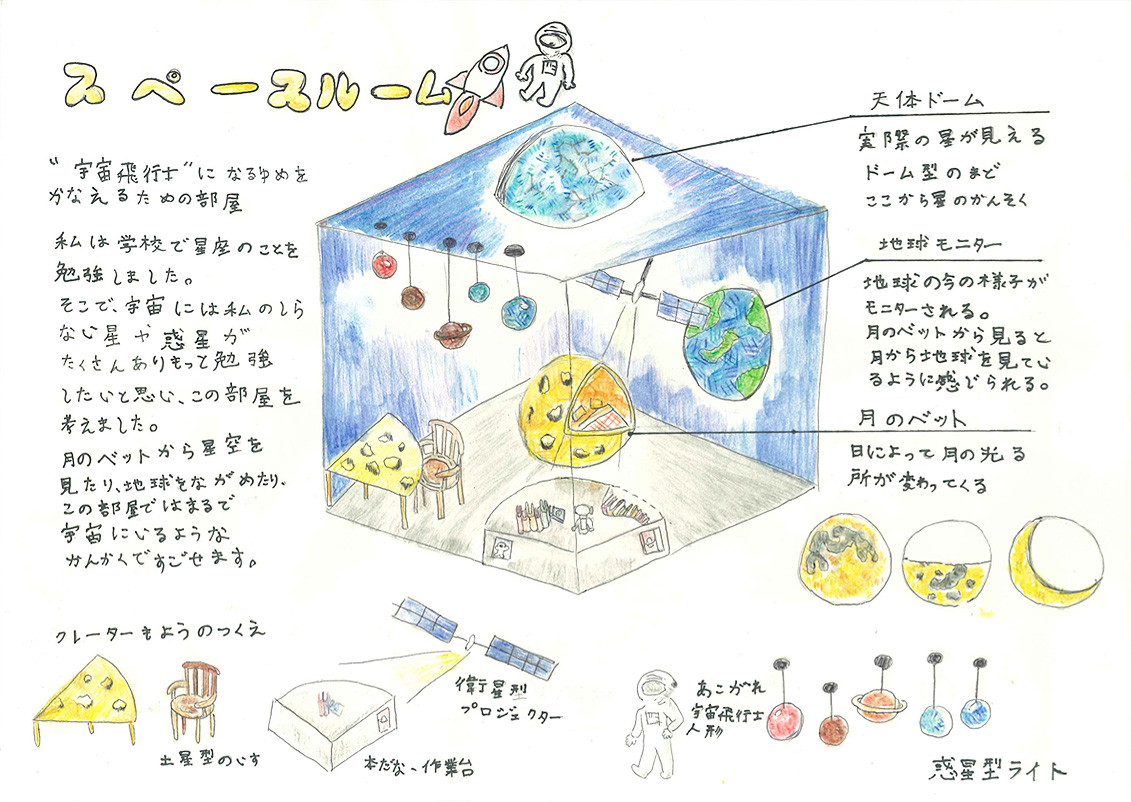 スペースルーム
"宇宙飛行士"になるゆめを
かなえるための部屋
私は学校で星座のことを
勉強しました。
そこで、宇宙には私のしら
ない星や惑星が
たくさんありもっと勉強
したいと思い、この部屋を
考えました。
月のベットから星空を
見たり、地球をながめたり、
この部屋ではまるで
宇宙にいるような
かんかくですごせます。
天体ドーム
実際の星が見える
ドーム型のまど
ここから星のかんそく
地球モニター
地球の今の様子が
モニターされる。
月のベットから見ると
月から地球を見てい
るように感じられる。
月のベット
日によって月の光る
所が変わってくる
クレーターもようのつくえ
土星型のいす
本だな、作業台
衛星型
プロジェクター
あこがれ
宇宙飛行士
人形
惑星型ライト